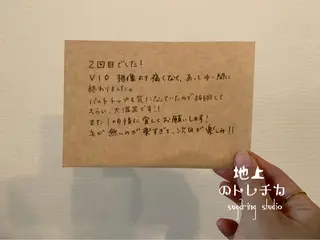 2回目でした!
VIO 想像より痛くなく、あっとゆー間に
終わりました。
バストトップも気になっていたので お願いして
もらい、大満足です!!
また1ヶ月後に宜しくお願いします!
毛が無いのが楽すぎて、次回が楽しみ!!
地上
のトレチカ
sugaring studio